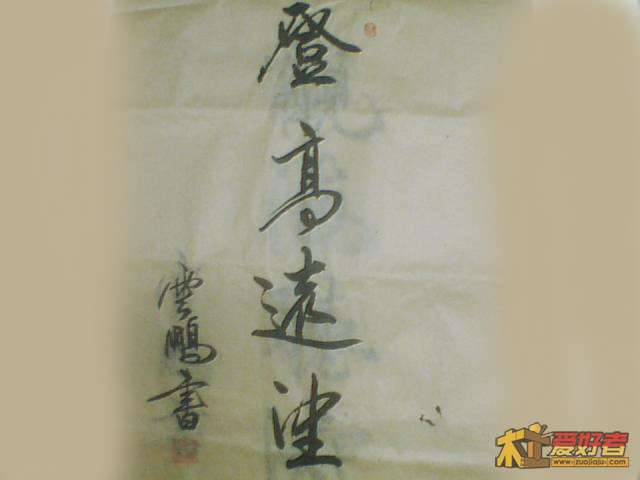 登高遠望
雲鵬書
木工爱好者
www.zuojiaju.com